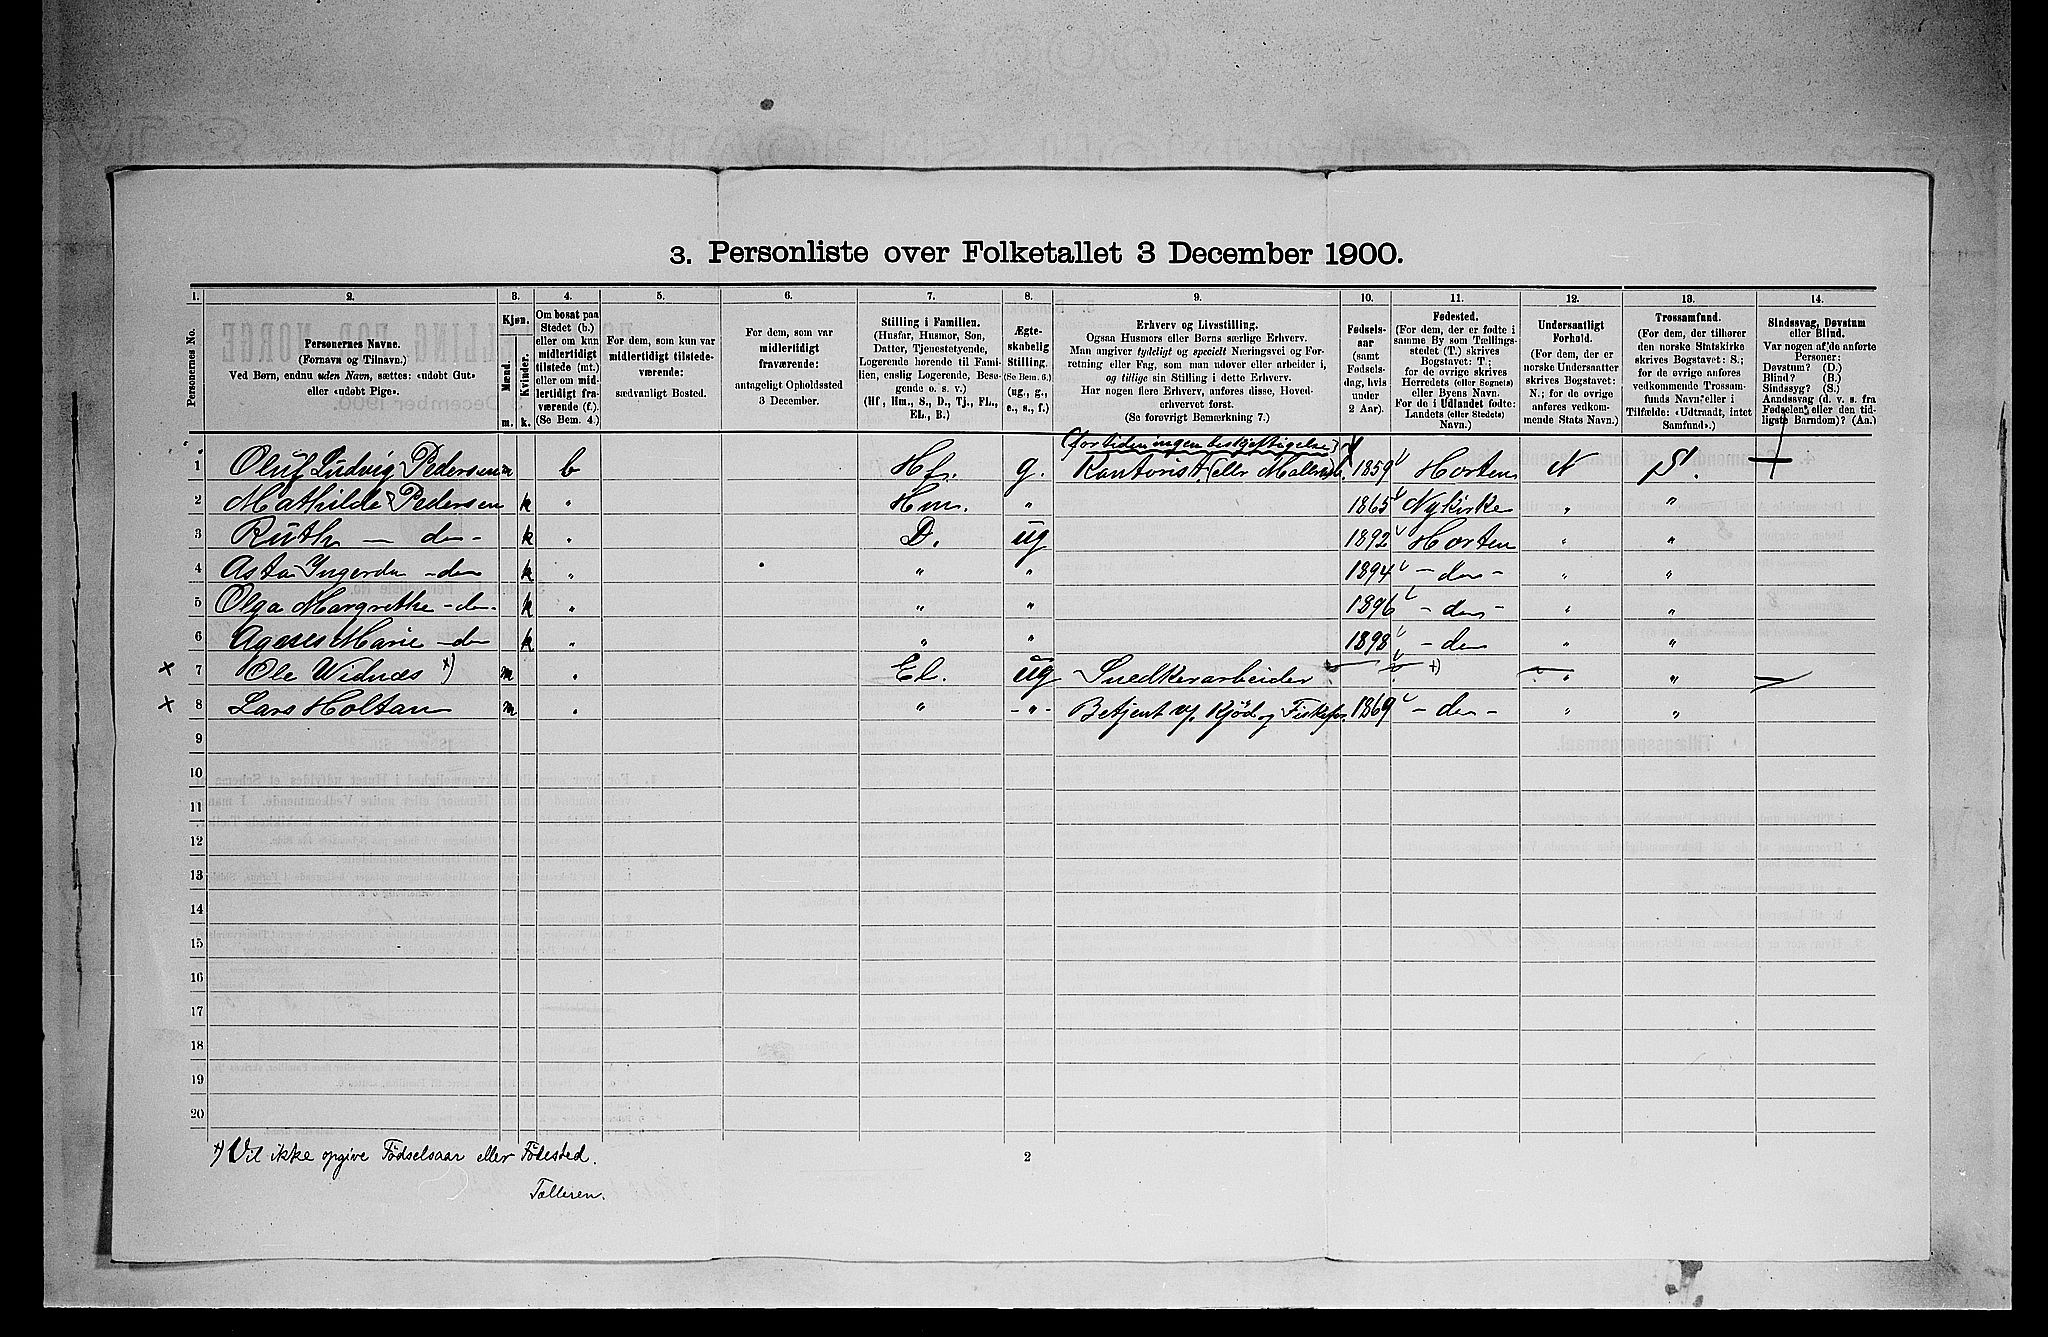 3. Personliste over Folketallet 3 December 1900.
1. 2. 3. 4. 5. 6. 7. 8. 9. 10. 11. 12. 13. 14.
Personernes No.
Personernes Navne.
(Fornavn og Tilnavn.)
Ved Børn, endnu uden Navn, sættes: «udøbt Gut»
eller «udøbt Pige».
Kjøn.
Mænd.
Kvinder.
m. k.
Om bosat paa
Stedet (b.)
eller om kun
midlertidigt
tilstede (mt.)
eller om mid-
lertidigt fra-
værende (f.).
(Se Bem. 4.)
For dem, som kun var
midlertidigt tilstede-
værende:
sædvanligt Bosted.
For dem, som var
midlertidigt
fraværende:
antageligt Opholdssted
3 December.
Stilling i Familien.
(Husfar, Husmor, Søn,
Datter, Tjenestetyende,
Logerende hørende til Fami-
lien, enslig Logerende, Besø-
gende o. s. v.)
(Hf., Hm., S., D., Tj., FL.,
EL., B.)
Ægte-
skabelig
Stilling.
(Se Bem. 6.)
(ug., g.,
e., s., f.)
Erhverv og Livsstilling.
Ogsaa Husmors eller Børns særlige Erhverv.
Man angiver tydeligt og specielt Næringsvei og For-
retning eller Fag, som man udøver eller arbeider i,
og tillige sin Stilling i dette Erhverv.
Har nogen flere Erhverv, anføres disse, Hoved-
erhvervet først.
(Se forøvrigt Bemerkning 7.)
Fødsels-
aar
(samt
Fødsels-
dag, hvis
under
2 Aar).
Fødested.
(For dem, der er fødte i
samme By som Tællings-
stedet (T.) skrives
Bogstavet: T;
for de øvrige skrives
Herredets (eller Sognets)
eller Byens Navn.
For de i Udlandet fødte:
Landets (eller Stedets)
Navn.)
Undersaatligt
Forhold.
(For dem, der er
norske Undersaatter
skrives Bogstavet:
N.; for de øvrige
anføres vedkom-
mende Stats Navn.)
Trossamfund.
(For dem, der tilhører
den norske Statskirke
skrives Bogstavet: S.;
for de øvrige anføres
vedkommende Trossam-
funds Navn eller i
Tilfælde: «Udtraadt, intet
Samfund».)
Sindssvag, Døvstum
eller Blind.
Var nogen af de anførte
Personer:
Døvstum? (D.)
Blind? (B.)
Sindssyg? (S.)
Aandssvag (d. v. s. fra
Fødselen eller den tid-
ligste Barndom)? (Aa.)
(for tiden ingen beskjeftigelse)
1 Oluf Ludvig Pedersen m b Hf. g. Kontorist (eller 1859 Horten N S.
2 Mathilde Pedersen k " Hm. " 1865 Nykirke " "
3 Ruth — do - k " D. ug 1892 Horten " "
4 Asta Ingerda - do k " " " 1894 - do - " "
5 Olga Margrethe - do - k " " " 1896 - do - " "
6 Agnes Marie - do k " " " 1898 - do " "
x 7 Ole Widnæs x) m " El. ug Snedkerarbeider — — x) — " " —
x 8 Lars Holtan m " " - " - Betjent v/ Kjød og Fiskefor. 1869 - do - " "
9
10
11
12
13
14
15
16
17
18
19
20
x) Vil ikke opgive Fødselsaar eller Fødested.
Tælleren.
2